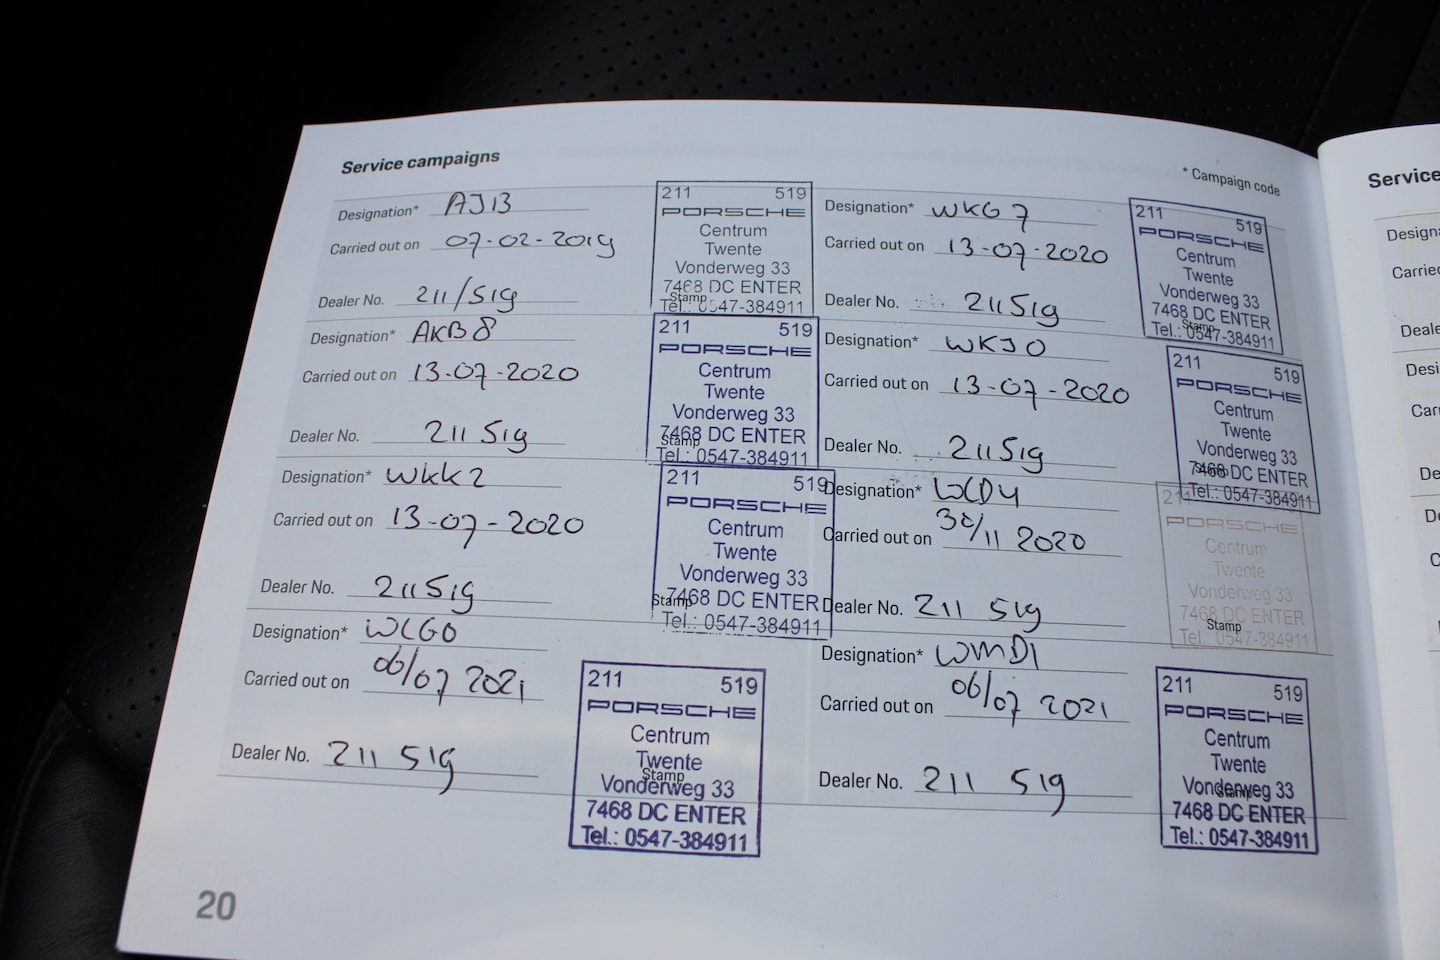 Service campaigns
* Campaign code
Designation* AJ13
Carried out on 07-02-2019
Dealer No. 211/519
211 519
PORSCHE
Centrum
Twente
Vonderweg 33
7468 DC ENTER
Stamp
Tel.: 0547-384911
Designation* AKB8
Carried out on 13-07-2020
Dealer No. 211 519
211 519
PORSCHE
Centrum
Twente
Vonderweg 33
7468 DC ENTER
Stamp
Tel.: 0547-384911
Designation* WKK2
Carried out on 13-07-2020
Dealer No. 211519
211 519
PORSCHE
Centrum
Twente
Vonderweg 33
7468 DC ENTER
Stamp
Tel.: 0547-384911
Designation* WLG0
Carried out on 06/07 2021
Dealer No. 211 519
211 519
PORSCHE
Centrum
Twente
Stamp
Vonderweg 33
7468 DC ENTER
Tel.: 0547-384911
Designation* WKG7
Carried out on 13-07-2020
Dealer No. 211519
211 519
PORSCHE
Centrum
Twente
Vonderweg 33
7468 DC ENTER
Stamp
Tel.: 0547-384911
Designation* WKJ0
Carried out on 13-07-2020
Dealer No. 211519
211 519
PORSCHE
Centrum
Twente
Vonderweg 33
7468 DC ENTER
Stamp
Tel.: 0547-384911
Designation* LCD4
Carried out on 30/11 2020
Dealer No. 211 519
211
PORSCHE
Centrum
Twente
Vonderweg 33
7468 DC ENTER
Stamp
Tel.: 0547-384911
Designation* WMD1
Carried out on 06/07 2021
Dealer No. 211 519
211 519
PORSCHE
Centrum
Twente
Vonderweg 33
Stamp
7468 DC ENTER
Tel.: 0547-384911
20
Service